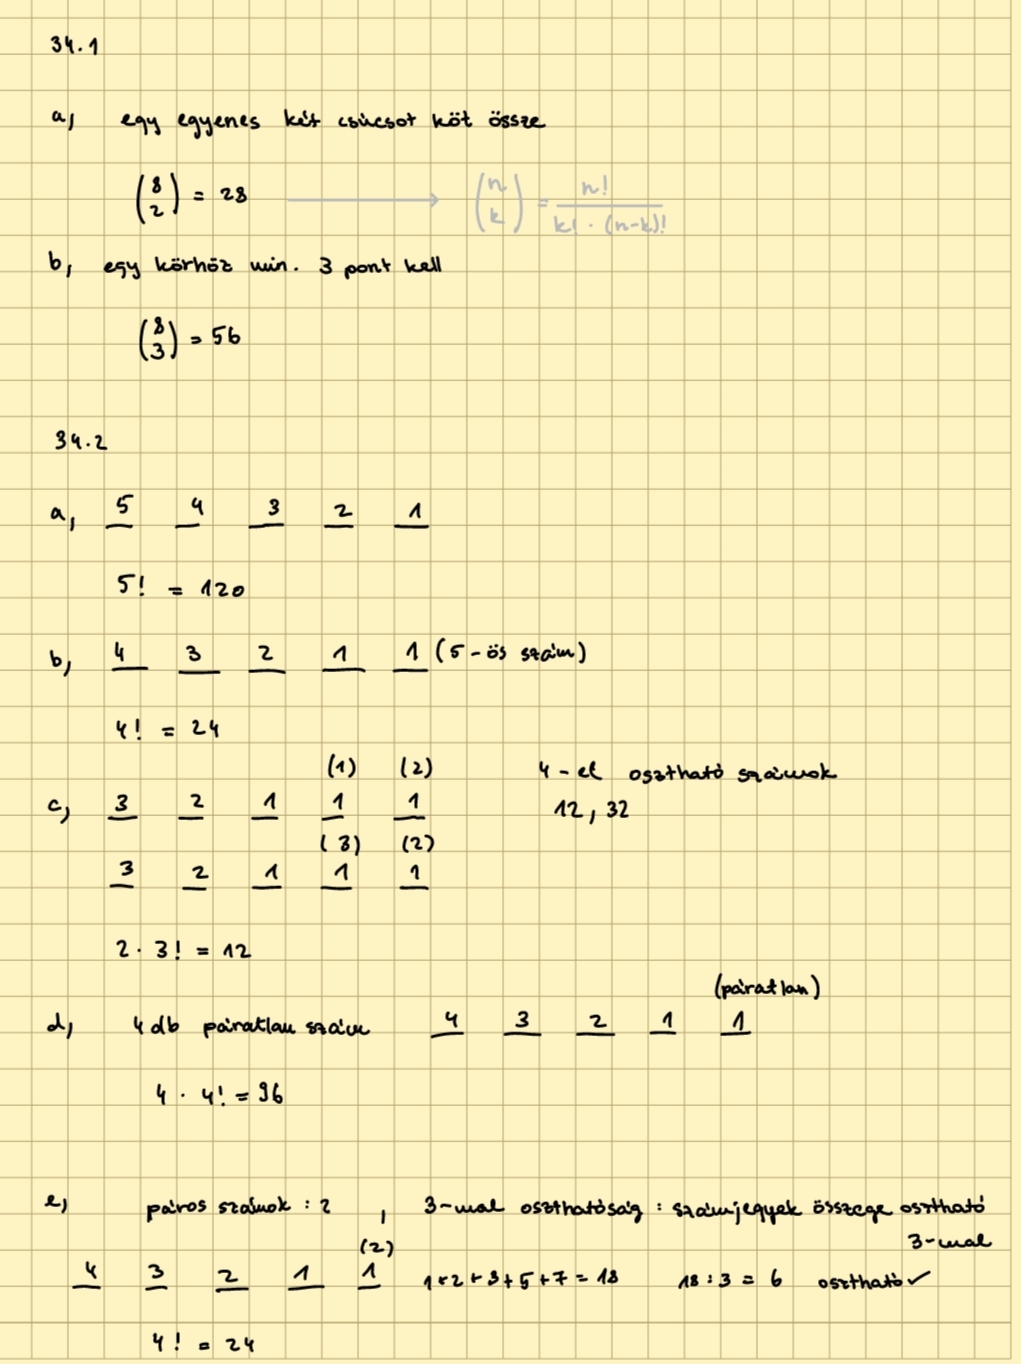 34.1
a, egy egyenes két csúcsot köt össze
(8 2) = 28 → (n k) = n! / k! · (n-k)!
b, egy körhöz min. 3 pont kell
(8 3) = 56
34.2
a, 5 4 3 2 1
5! = 120
b, 4 3 2 1 1 (5-ös szám)
4! = 24
(1) (2) 4-el osztható számok
c, 3 2 1 1 1 12, 32
(3) (2)
3 2 1 1 1
2 · 3! = 12
(páratlan)
d, 4 db páratlan szám 4 3 2 1 1
4 · 4! = 96
e, páros számok : 2 , 3-mal oszthatóság : számjegyek összege osztható
3-mal
(2)
4 3 2 1 1 1+2+3+5+7=18 18:3 = 6 osztható ✓
4! = 24